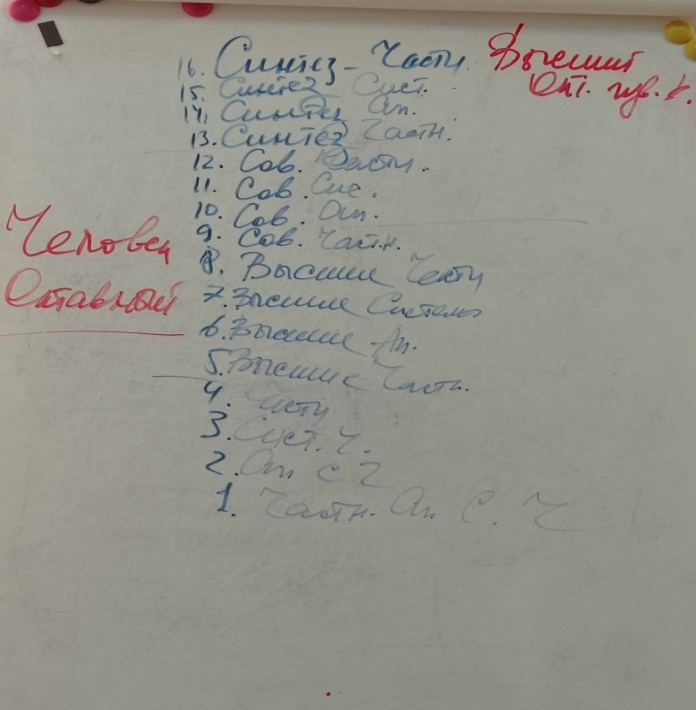 16. Синтез-Части Высший
15. Синтез Сист.
14. Синтез Ап.
13. Синтез Частн.
12. Сов. Части.
11. Сов. Сис.
10. Сов. Ап.
9. Сов. Частн.
8. Высшие Части
7. Высшие Системы
6. Высшие Ап.
5. Высшие Частн.
4. Части
3. Сист. Ч.
2. Ап С Ч
1. Частн. Ап С. Ч
Человек